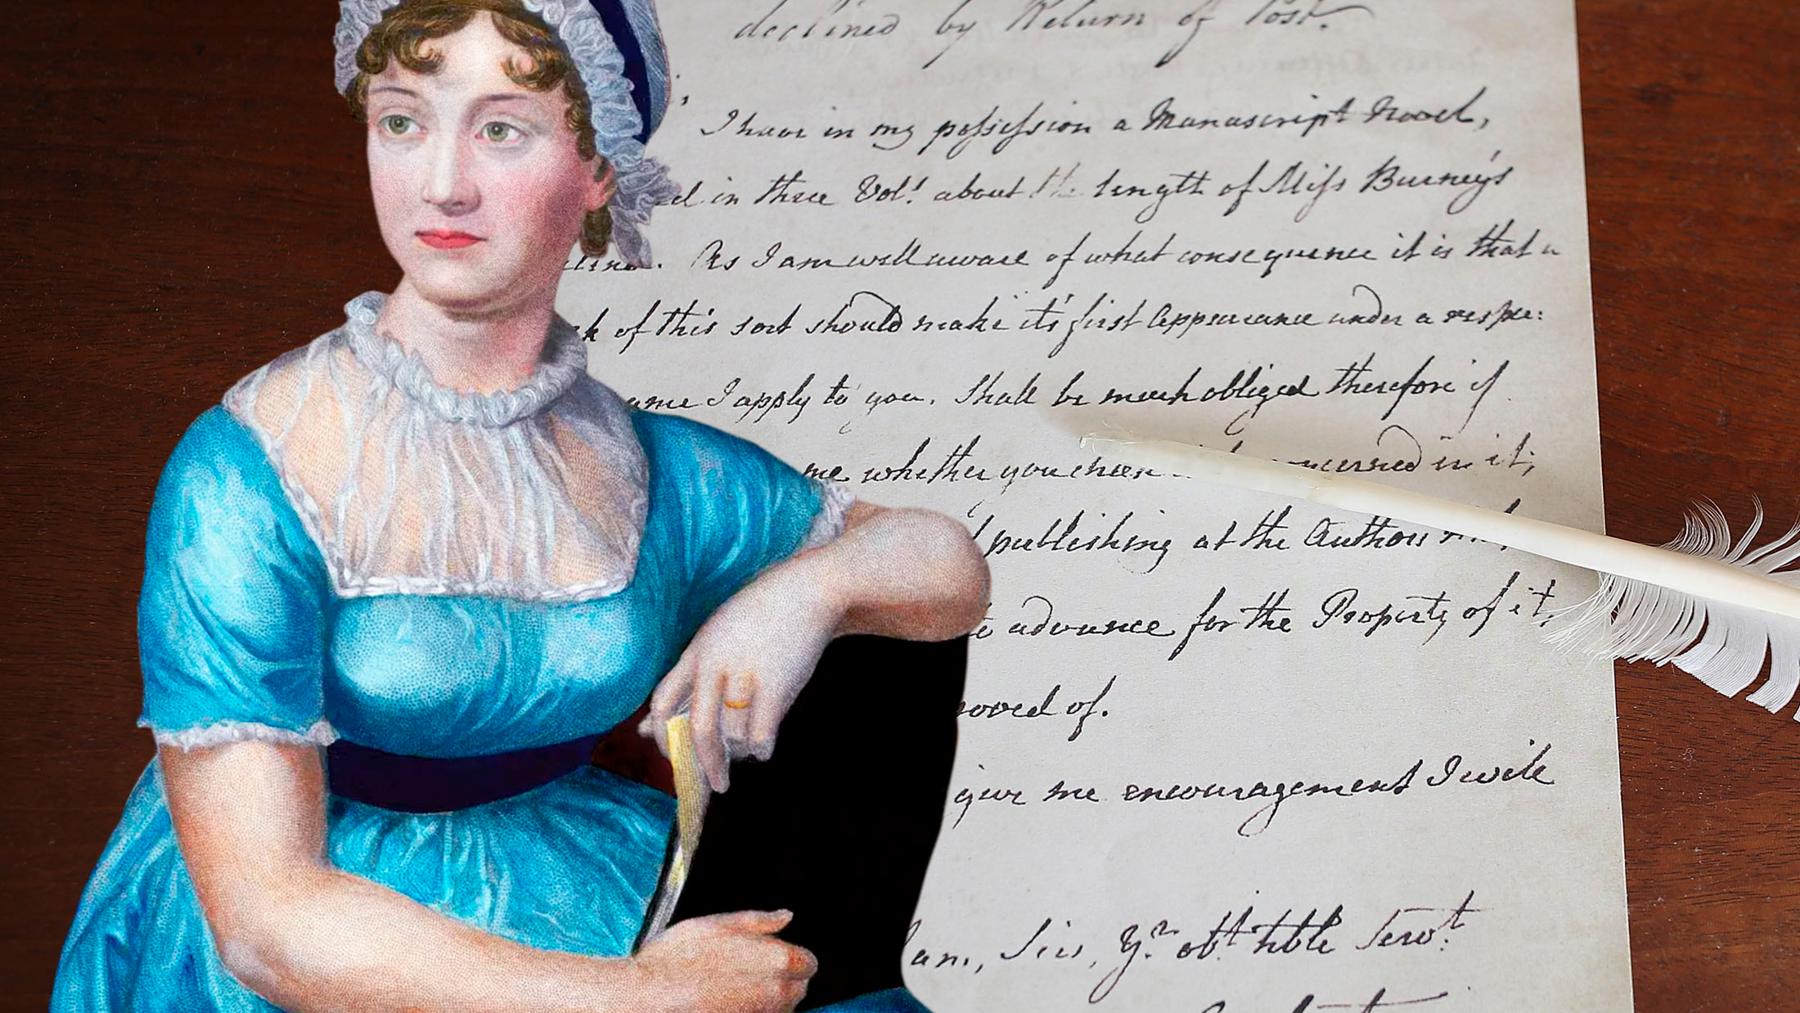 declined by Return of Post.
I have in my possession a Manuscript Novel,
in three Vol.s about the length of Miss Burney's
As I am well aware of what consequence it is that a
of this sort should make it's first appearance under a respec:
I apply to you. Shall be much obliged therefore if
me whether you chuse in it;
publishing at the Author's
advance for the Property of it,
of.
give me encouragement I will
am, Sir, Yr. obt. hble Servt.